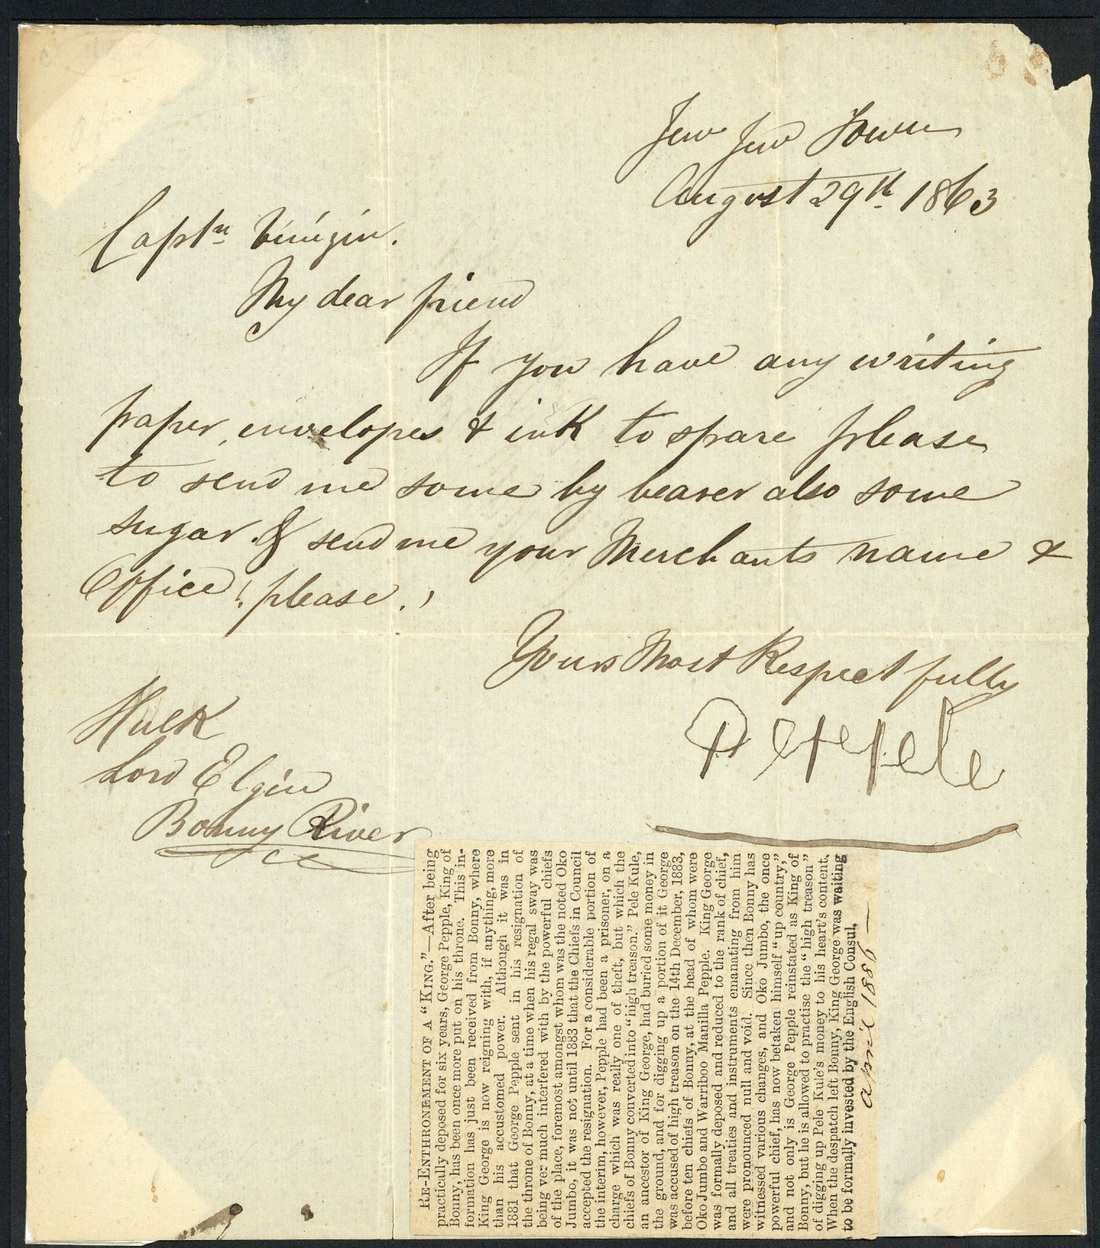 Jew Jew Town
August 29th 1863
Captn
My dear friend
If you have any writing
paper, envelopes & ink to spare please
to send me some by bearer also some
sugar. & send me your Merchants name &
Office! please.!
Yours Most Respectfully
Pepple
Hulk
Lord Elgin
Bonny River
RE-ENTHRONEMENT OF A "KING."—After being
practically deposed for six years, George Pepple, King of
Bonny, has been once more put on his throne. This in-
formation has just been received from Bonny, where
King George is now reigning with, if anything, more
than his accustomed power. Although it was in
1881 that George Pepple sent in his resignation of
the throne of Bonny, at a time when his regal sway was
being ver much interfered with by the powerful chiefs
of the place, foremost amongst whom was the noted Oko
Jumbo, it was not until 1883 that the Chiefs in Council
accepted the resignation. For a considerable portion of
the interim, however, Pepple had been a prisoner, on a
charge which was really one of theft, but which the
chiefs of Bonny converted into "high treason." Pele Kule,
an ancestor of King George, had buried some money in
the ground, and for digging up a portion of it George
was accused of high treason on the 14th December, 1883,
before ten chiefs of Bonny, at the head of whom were
Oko Jumbo and Warriboo Manilla Pepple. King George
was formally deposed and reduced to the rank of chief,
and all treaties and instruments emanating from him
were pronounced null and void. Since then Bonny has
witnessed various changes, and Oko Jumbo, the once
powerful chief, has now betaken himself "up country,"
and not only is George Pepple reinstated as King of
Bonny, but he is allowed to practise the "high treason"
of digging up Pele Kule's money to his heart's content.
When the despatch left Bonny, King George was waiting
to be formally invested by the English Consul.
april